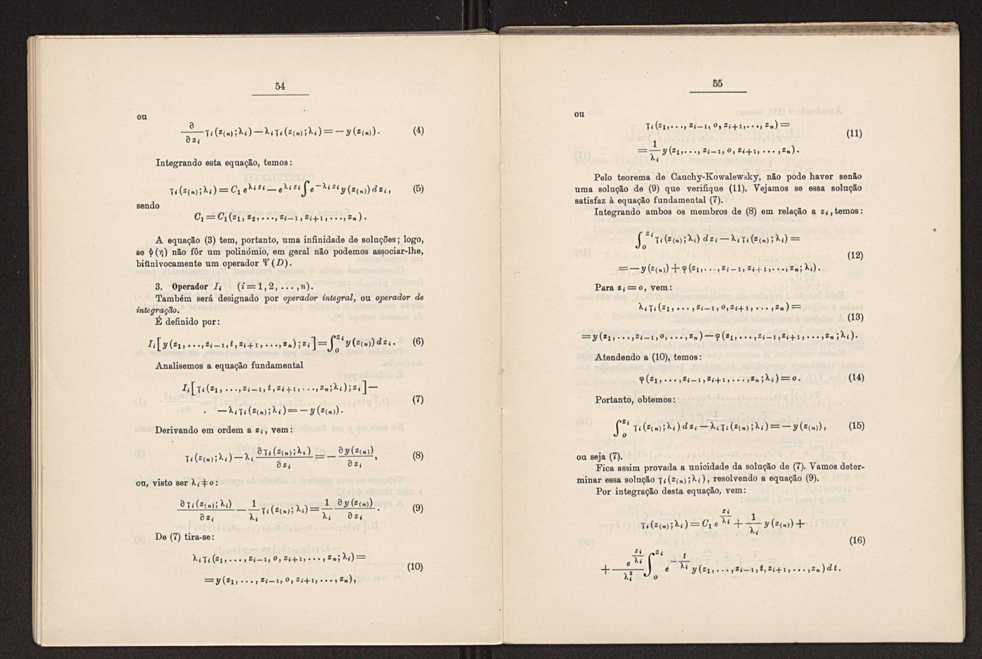 54
ou
∂/∂z_i γ_i(z_(n); λ_i) — λ_i γ_i(z_(n); λ_i) = — y(z_(n)). (4)
Integrando esta equação, temos:
γ_i(z_(n); λ_i) = C_1 e^{λ_i z_i} — e^{λ_i z_i} ∫ e^{—λ_i z_i} y(z_(n)) d z_i, (5)
sendo
C_1 = C_1(z_1, z_2, ..., z_{i—1}, z_{i+1}, ..., z_n).
A equação (3) tem, portanto, uma infinidade de soluções; logo,
se ϕ(η) não fôr um polinómio, em geral não podemos associar-lhe,
biünivocamente um operador Ψ(D).
3. Operador I_i (i = 1, 2, ..., n).
Também será designado por operador integral, ou operador de
integração.
É definido por:
I_i[y(z_1, ..., z_{i—1}, t, z_{i+1}, ..., z_n); z_i] = ∫_o^{z_i} y(z_(n)) d z_i. (6)
Analisemos a equação fundamental
I_i[γ_i(z_1, ..., z_{i—1}, t, z_{i+1}, ..., z_n; λ_i); z_i] —
(7)
. — λ_i γ_i(z_(n); λ_i) = — y(z_(n)).
Derivando em ordem a z_i, vem:
γ_i(z_(n); λ_i) — λ_i ∂γ_i(z_(n); λ_i)/∂z_i = — ∂y(z_(n))/∂z_i, (8)
ou, visto ser λ_i ≠ o:
∂γ_i(z_(n); λ_i)/∂z_i — 1/λ_i γ_i(z_(n); λ_i) = 1/λ_i ∂y(z_(n))/∂z_i. (9)
De (7) tira-se:
λ_i γ_i(z_1, ..., z_{i—1}, o, z_{i+1}, ..., z_n; λ_i) =
(10)
= y(z_1, ..., z_{i—1}, o, z_{i+1}, ..., z_n),
55
ou
γ_i(z_1, ..., z_{i—1}, o, z_{i+1}, ..., z_n) =
(11)
= 1/λ_i y(z_1, ..., z_{i—1}, o, z_{i+1}, ..., z_n).
Pelo teorema de Cauchy-Kowalewsky, não pode haver senão
uma solução de (9) que verifique (11). Vejamos se essa solução
satisfaz à equação fundamental (7).
Integrando ambos os membros de (8) em relação a z_i, temos:
∫_o^{z_i} γ_i(z_(n); λ_i) d z_i — λ_i γ_i(z_(n); λ_i) =
(12)
= — y(z_(n)) + φ(z_1, ..., z_{i—1}, z_{i+1}, ..., z_n; λ_i).
Para z_i = o, vem:
λ_i γ_i(z_1, ..., z_{i—1}, o, z_{i+1}, ..., z_n) =
(13)
= y(z_1, ..., z_{i—1}, o, ..., z_n) — φ(z_1, ..., z_{i—1}, z_{i+1}, ..., z_n; λ_i).
Atendendo a (10), temos:
φ(z_1, ..., z_{i—1}, z_{i+1}, ..., z_n; λ_i) = o. (14)
Portanto, obtemos:
∫_o^{z_i} γ_i(z_(n); λ_i) d z_i — λ_i γ_i(z_(n); λ_i) = — y(z_(n)), (15)
ou seja (7).
Fica assim provada a unicidade da solução de (7). Vamos deter-
minar essa solução γ_i(z_(n); λ_i), resolvendo a equação (9).
Por integração desta equação, vem:
γ_i(z_(n); λ_i) = C_1 e^{z_i/λ_i} + 1/λ_i y(z_(n)) +
(16)
+ e^{z_i/λ_i}/λ_i^2 ∫_o^{z_i} e^{—t/λ_i} y(z_1, ..., z_{i—1}, t, z_{i+1}, ..., z_n) d t.